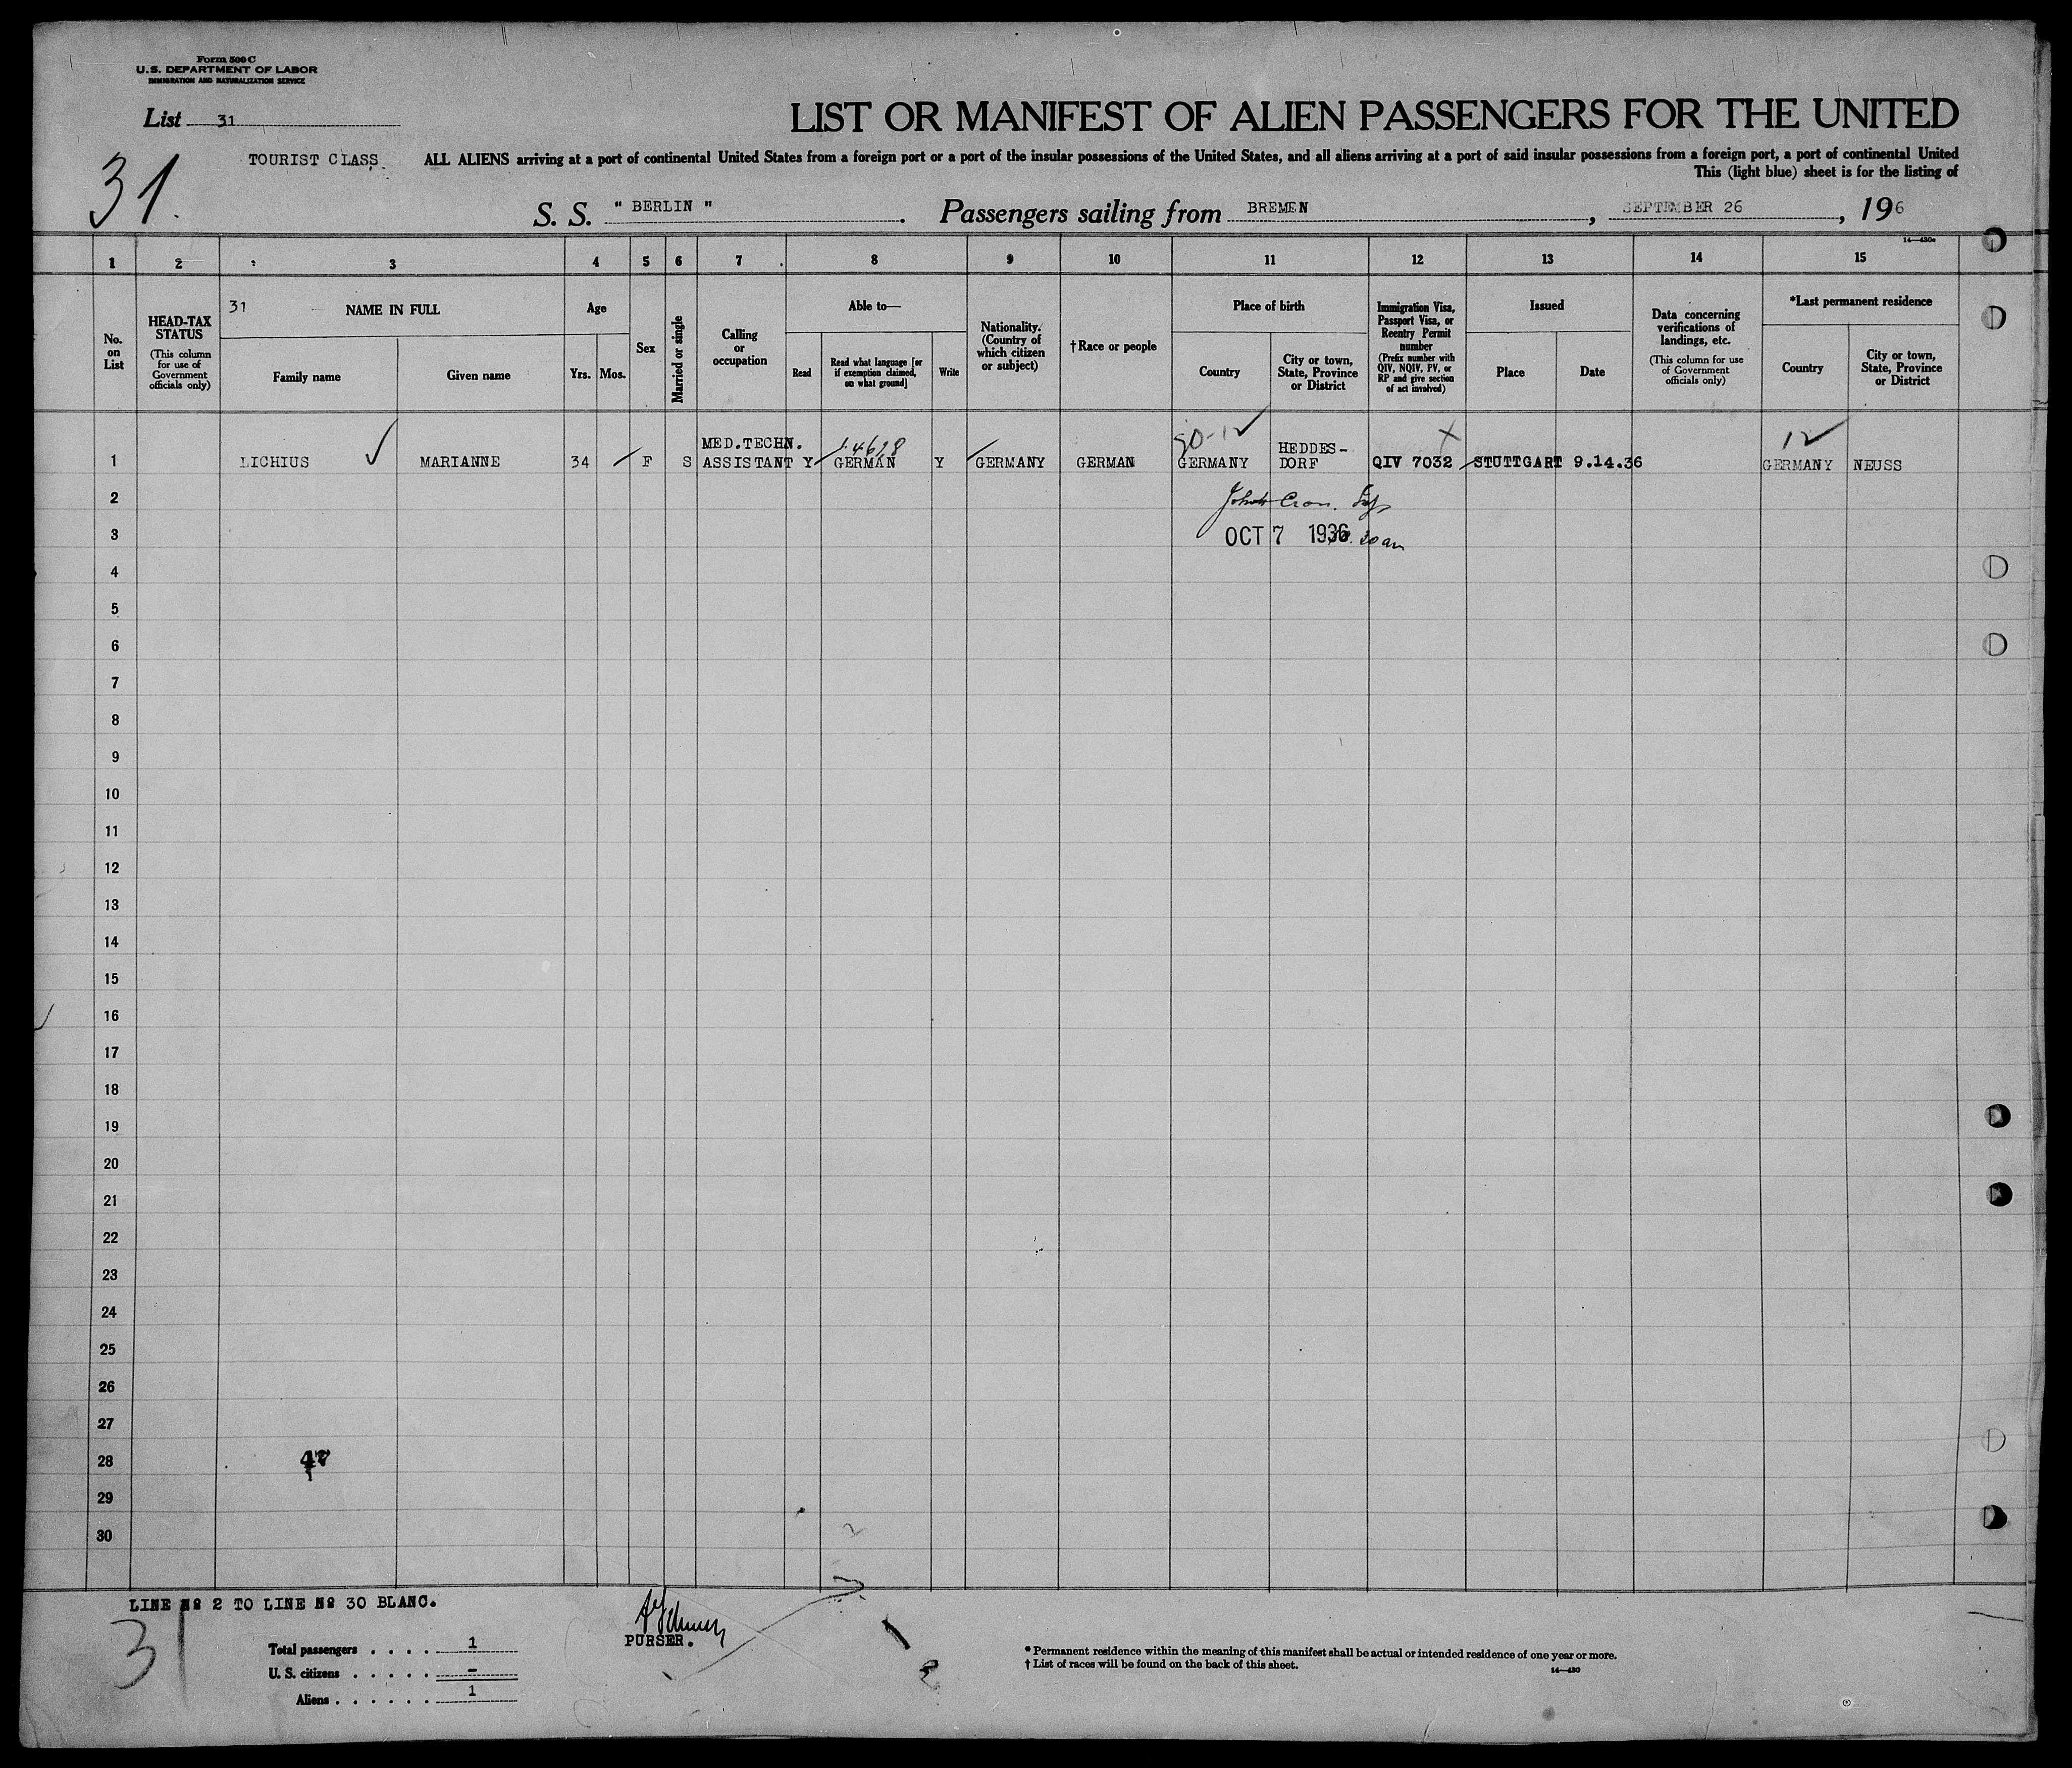 Form 500 C
U.S. DEPARTMENT OF LABOR
IMMIGRATION AND NATURALIZATION SERVICE
List 31
LIST OR MANIFEST OF ALIEN PASSENGERS FOR THE UNITED
31.
TOURIST CLASS
ALL ALIENS arriving at a port of continental United States from a foreign port or a port of the insular possessions of the United States, and all aliens arriving at a port of said insular possessions from a foreign port, a port of continental United
This (light blue) sheet is for the listing of
S. S. " BERLIN ". Passengers sailing from BREMEN, SEPTEMBER 26, 19 6
14—430c
1 2 3 4 5 6 7 8 9 10 11 12 13 14 15
No. on List
HEAD-TAX STATUS
(This column for use of Government officials only)
31 NAME IN FULL
Family name Given name
Age
Yrs. Mos.
Sex
Married or single
Calling or occupation
Able to—
Read
Read what language [or if exemption claimed, on what ground]
Write
Nationality. (Country of which citizen or subject)
†Race or people
Place of birth
Country
City or town, State, Province or District
Immigration Visa, Passport Visa, or Reentry Permit number
(Prefix number with QIV, NQIV, PV, or RP and give section of act involved)
Issued
Place Date
Data concerning verifications of landings, etc.
(This column for use of Government officials only)
*Last permanent residence
Country
City or town, State, Province or District
1 LICHIUS MARIANNE 34 F S MED.TECHN. ASSISTANT Y GERMAN Y GERMANY GERMAN GERMANY HEDDES- DORF QIV 7032 STUTTGART 9.14.36 12 GERMANY NEUSS
2
3 OCT 7 1936
4
5
6
7
8
9
10
11
12
13
14
15
16
17
18
19
20
21
22
23
24
25
26
27
28
29
30
LINE No 2 TO LINE No 30 BLANC.
31
PURSER.
Total passengers . . . . 1
U. S. citizens . . . . . –
Aliens . . . . . . 1
* Permanent residence within the meaning of this manifest shall be actual or intended residence of one year or more.
† List of races will be found on the back of this sheet.
14—430